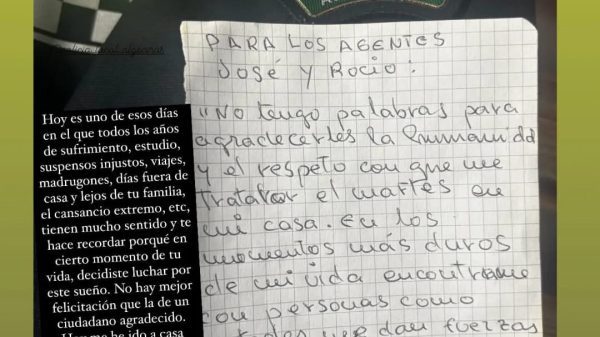 PARA LOS AGENTES
José y Rocío:
"No tengo palabras para
agradecerles la humanidd
y el respeto con que me
trataror el martes en
mi casa. En los
momentos más duros
de mi vida encontrarme
con personas como
me dan fuerzas
Hoy es uno de esos días
en el que todos los años
de sufrimiento, estudio,
suspensos injustos, viajes,
madrugones, días fuera de
casa y lejos de tu familia,
el cansancio extremo, etc,
tienen mucho sentido y te
hace recordar porqué en
cierto momento de tu
vida, decidiste luchar por
este sueño. No hay mejor
felicitación que la de un
ciudadano agradecido.
he ido a casa